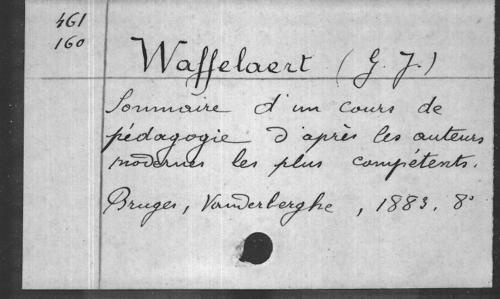 461
160
Waffelaert (G. J.)
Sommaire d'un cours de
pédagogie d'après les auteurs
modernes les plus compétents.
Bruges, Vanderberghe, 1883. 8°